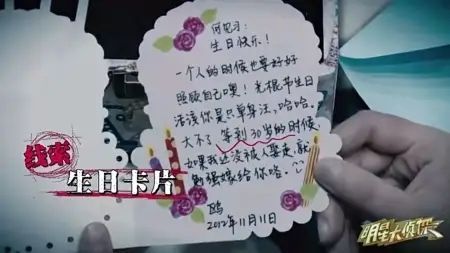 何见习:
生日快乐!
一个人的时候也要好好
照顾自己噢!光棍节生日
活该你是只单身汪,哈哈。
大不了 等到30岁的时候
如果我还没被人娶走,就
勉强嫁给你咯。
鸥
2012年11月11日
线索
生日卡片
明星大侦探